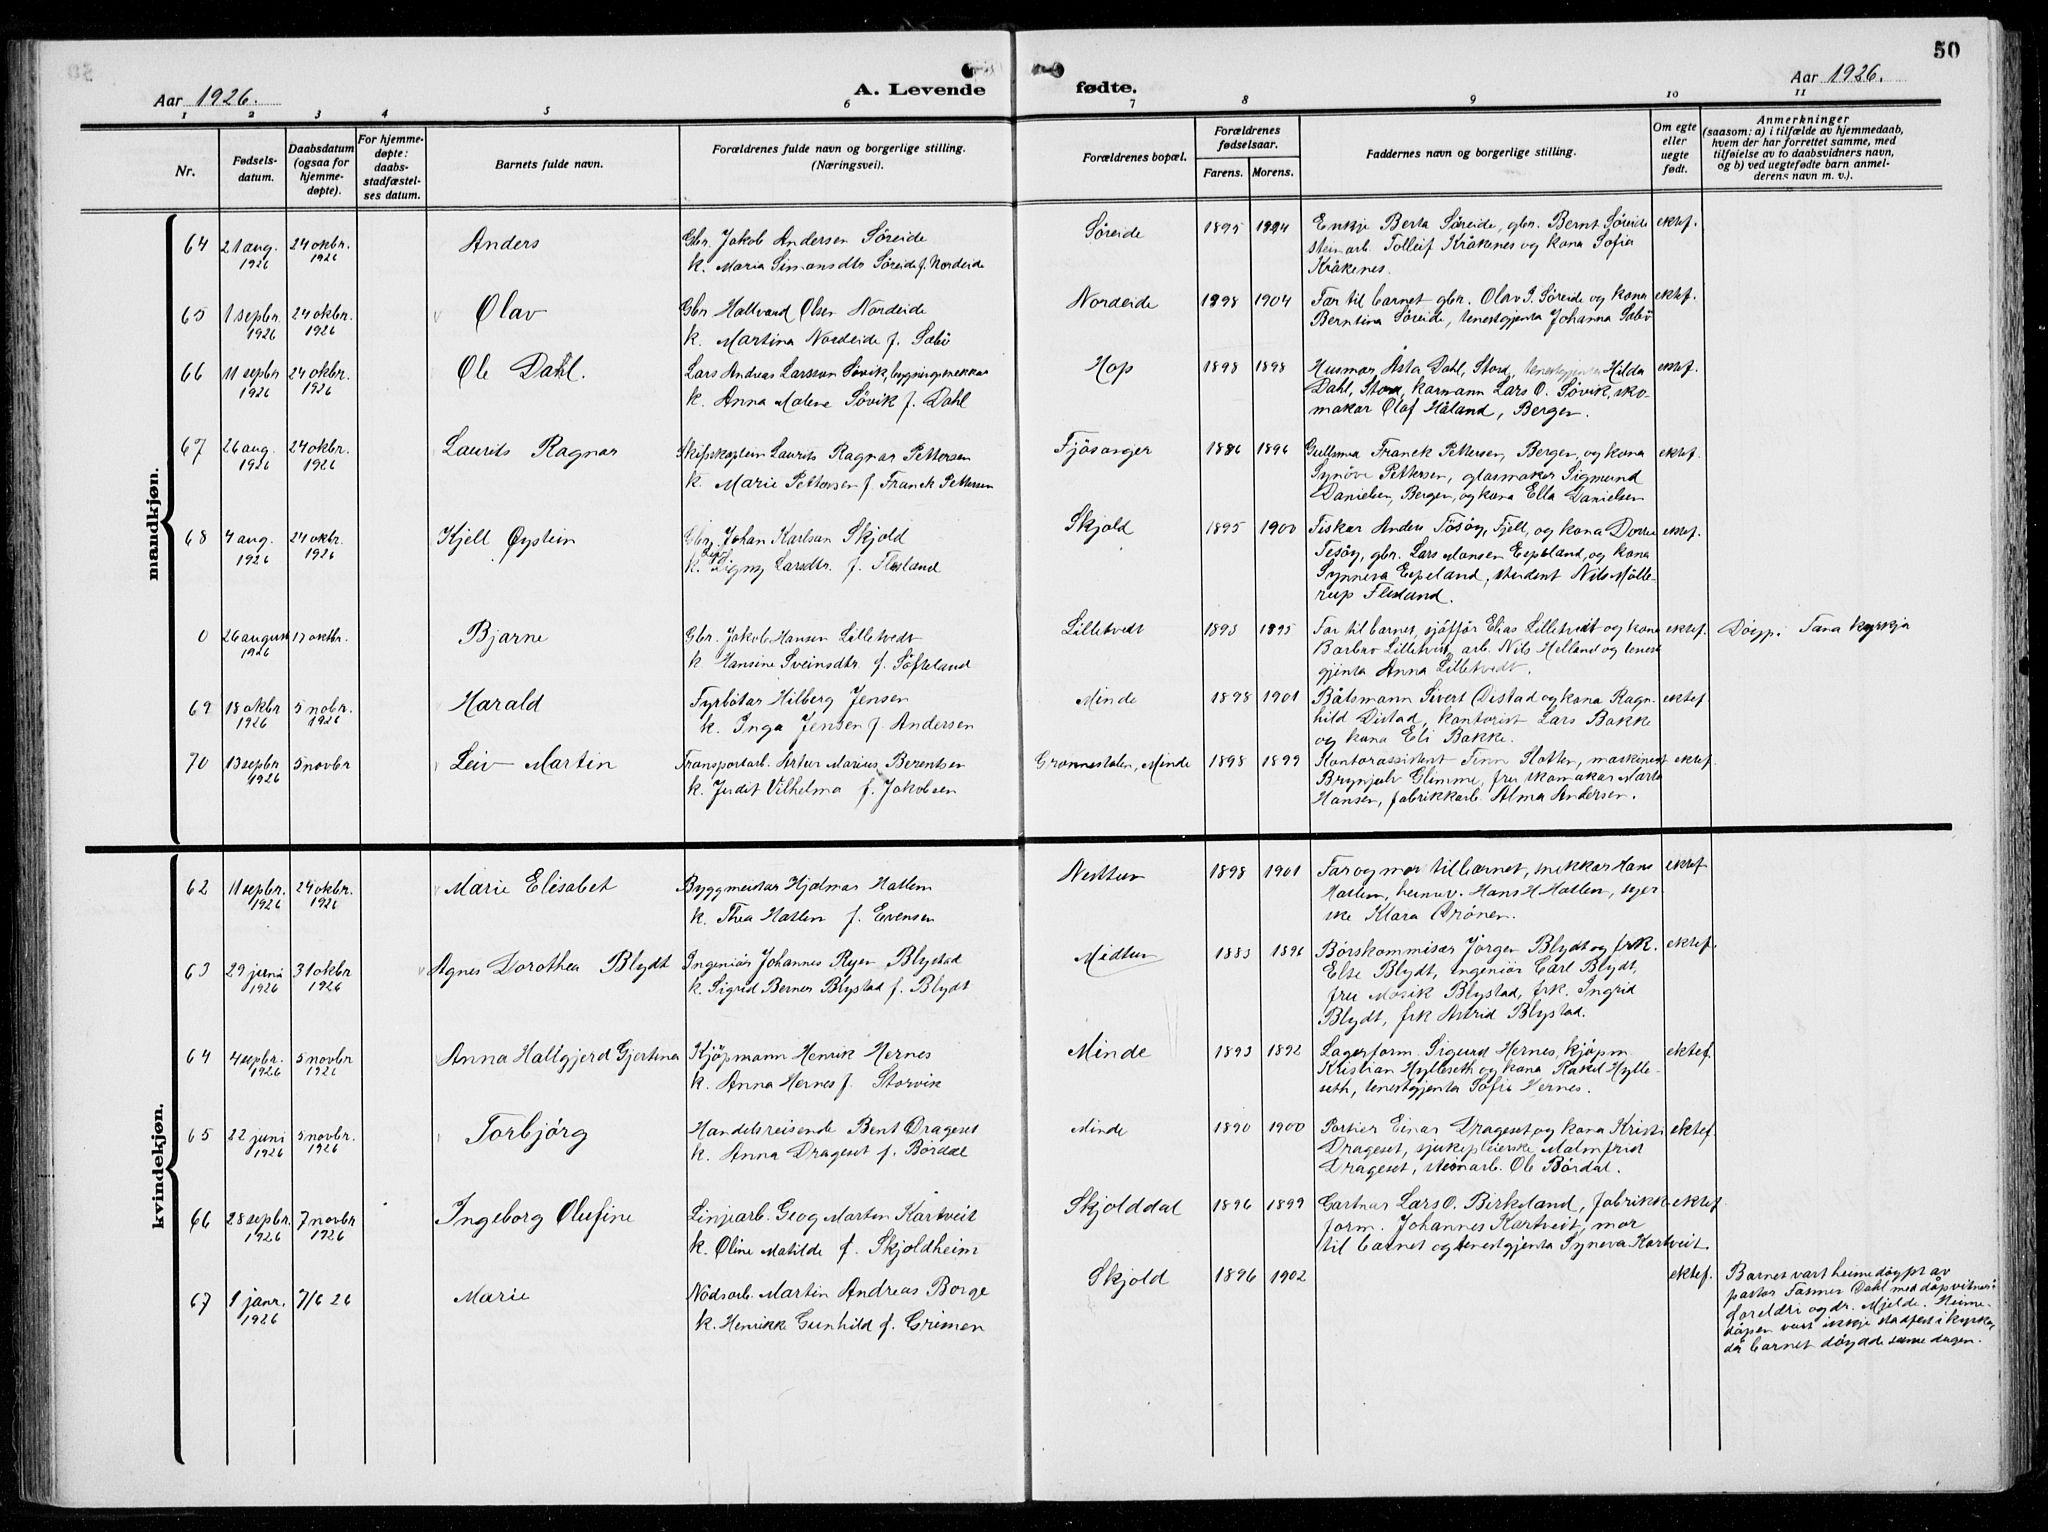 50
Aar 1926. A. Levende fødte. Aar 1926.
1 2 3 4 5 6 7 8 9 10 11
Nr.
Fødsels-
datum.
Daabsdatum
(ogsaa for
hjemme-
døpte).
For hjemme-
døpte:
daabs-
stadfæstel-
ses datum.
Barnets fulde navn.
Forældrenes fulde navn og borgerlige stilling.
(Næringsvei).
Forældrenes bopæl.
Forældrenes
fødselsaar.
Farens. Morens.
Faddernes navn og borgerlige stilling.
Om egte
eller
uegte
født.
Anmerkninger
(saasom: a) i tilfælde av hjemmedaab,
hvem der har forrettet samme, med
tilføielse av to daabsvidners navn,
og b) ved uegtefødte barn anmel-
derens navn m. v.).
mandkjøn.
64 21 aug. 1926 24 okbr. 1926 Anders
Gbr. Jakob Andersen Søreide
k. Maria Simonsdtr Søreide f. Nordeide
Søreide 1895 1894
Enkje Berta Søreide, gbr. Bernt Søreide
steinarb. Tolleif Kråkenes og kona Sofia
Kråkenes.
ektef.
65 1 sepbr. 1926 24 okbr. 1926 Olav
Gbr Hallvard Olsen Nordeide
k. Martina Nordeide f. Sæbö
Nordeide 1898 1904
Far til barnet gbr. Olav J. Søreide og kona
Berntina Søreide, tenestgjenta Johanna Sæbö
ektef.
66 11 sepbr 1926 24 okbr. 1926 Ole Dahl.
Lars Andreas Larsson Søvik, bygningssnekkar
k. Anna Malene Søvik f. Dahl
Hop 1898 1898
Husmor Åsta Dahl, Stord, tenestgjenta Hilda
Dahl, Stord, formann Lars O. Søvik, sko-
makar Olaf Håland, Bergen.
ektef.
67 26 aug. 1926 24 okbr. 1926 Laurits Ragnar
Skipskaptein Laurits Ragnar Pettersen
k. Marie Pettersen f. Franck Pettersen
Fjösanger 1886 1896
Gullsmed Franck Pettersen, Bergen, og kona
Synöve Pettersen, glasmakar Sigmund
Danielsen, Bergen, og kona Ella Danielsen
ektef.
68 4 aug. 1926 24 okbr. 1926 Kjell Øystein
Gbr. Johan Karlson Skjold
k. Signy Larsdtr. f. Flesland
Skjold 1895 1900
Fiskar Anders Tösöy, Fjell, og kona Dorte
Tesöy, gbr. Lars Monsen Espeland, og kona
Synneva Espeland, student Nils Mölle-
rup Flesland.
ektef.
0 26 august 1926 17 oktbr. Bjarne
Gbr. Jakob Hansen Lilletvedt
k Hansine Sveinsdtr f. Söfteland
Lilletvedt 1893 1895
Far til barnet, sjåffør Elias Lilletvedt og kona
Barbro Lilletvedt, arb. Nils Helland og tenest
gjenta Anna Lilletvedt.
ektef. Döypt i Fana kyrkja
69 18 okbr 1926 5 nobr. 1926 Harald
Fyrbötar Hilberg Jensen
k. Inga Jensen f. Andersen
Minde 1898 1901
Båtsmann Sivert Distad og kona Ragn-
hild Distad, kontorist Lars Bakke
og kona Eli Bakke.
ektef.
70 13 sepbr 1926 5 novbr Leiv Martin
Transportarb. Artur Marius Berentsen
k. Judit Vilhelma f. Jakobsen
Grønnestølen, Minde 1898 1899
Kontorassistent Finn Slotten, maskinist
Brynjulv Glimme, fru skomakar Marta
Hansen, fabrikkarb. Alma Andersen.
ektef.
kvindekjøn.
62 11 sepbr. 1926 24 okbr. 1926 Marie Elisabet
Byggmeistar Hjalmar Hatlem
k. Thea Hatlem f. Evensen
Nesttun 1898 1901
Far og mor til barnet, snekkar Hans
Hatlem, heimev. Hans H Hatlem, syer
ske Klara Grönen.
ektef
63 29 juni 1926 31 okbr 1926 Agnes Dorothea Blydt
Ingeniör Johannes Ryer Blystad
k. Sigrid Berner Blystad f. Blydt
Midtun 1883 1896
Børskommisær Jörgen Blydt og frk.
Else Blydt, ingeniör Carl Blydt,
fru Blystad, frk. Ingrid
Blydt, frk Astrid Blystad.
ektef.
64 4 sepbr. 1926 5 novbr 1926 Anna Hallgjerd Gjertina
Kjöpmann Henrik Hernes
k. Anna Hernes f. Storvik
Minde 1893 1892
Lagerform. Sigurd Hernes, kjöpm
Kristian Hylleseth og kona Rakel Hylle-
seth, tenestgjenta Sofie Hernes.
ektef.
65 22 juni 1926 5 novbr. 1926 Torbjörg
Handelsreisende Bent Drageset
k. Anna Drageset f. Bördal
Minde 1890 1900
Portier Einar Drageset og kona Kristi
Drageset, sjukepleierske Malmfrid
Drageset, steinarb. Ole Bördal.
ektef.
66 28 sepbr. 1926 7 novbr 1926 Ingeborg Olufine
Linjearb. Georg Martin Kartveit
k. Oline Matilde f. Skjoldheim
Skjolddal 1896 1899
Gartnar Lars O. Birkeland, fabrikk-
form. Johannes Kartveit, mor
til barnet og tenestgjenta Syneva Kartveit.
ektef
67 1 janr. 1926 7/6 26 Marie
Nödsarb. Martin Andreas Borge
k. Henrikke Gunhild f. Grimen
Skjold 1896 1902
ektef.
Barnet vart heimedöypt av
pastor Dahl med dåpvitnesi
foreldri og dr. Mjelde. Heime-
dåpen vart ikkje stadfest i kyrkja,
då barnet döydde same dagen.